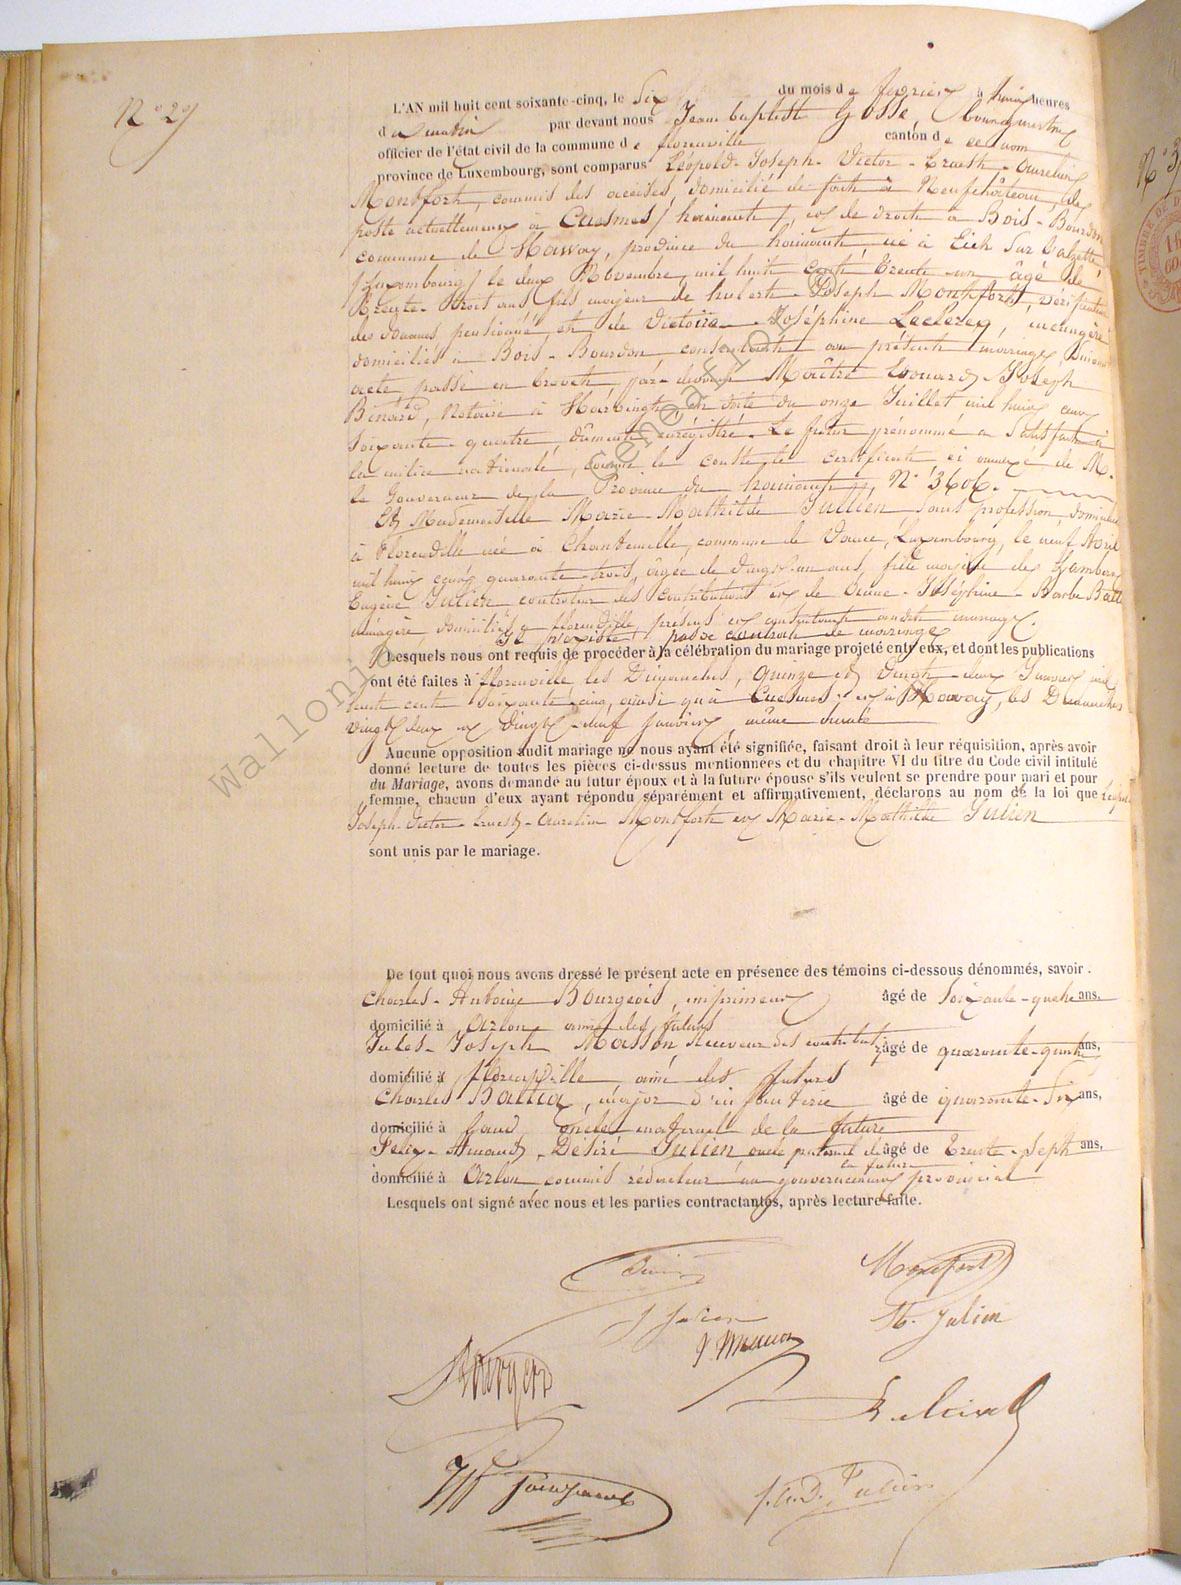 N° 2
L'AN mil huit cent soixante-cinq, le Six du mois de février à huit heures
du matin par devant nous Jean Baptiste Gosse, bourgmestre
officier de l'état civil de la commune de florenville canton de ce nom
province de Luxembourg, sont comparus Léopold-Joseph-Victor-Ernest-Aurélien
Montfort, commis des accises, domicilié de fait à Neufchâteau, de
poste actuellement à Cuesmes / hainaut /, et de droit à Bois-Bourdon
commune de Havay, province du hainaut né à Eich sur l'alzette
/ Luxembourg / le deux Novembre mil huit cent trente-un âgé de
trente-trois ans fils majeur de hubert-Joseph Montfort, vérificateur
des douanes pensionné, et de Victoire-Joséphine Leclercq, ménagère
domiciliés à Bois-Bourdon, consentant au présent mariage suivant
acte passé en brevet par-devant Maître Edouard-Joseph
Binard, Notaire à Harvengt en date du onze Juillet mil huit cent
soixante-quatre, dûment enrégistré. Le futur prénommé a satisfait à
la milice nationale, comme le constate le certificat ci annexé de M.
le Gouverneur de la Province du hainaut, N° 3606.
Et Mademoiselle Marie-Mathilde Julien sans profession domiciliée
à Florenville née à Chantemelle, commune de Vance, Luxembourg, le neuf Avril
mil huit cent quarante-trois, âgée de vingt-un ans, fille majeure de Lambert
Eugène Julien controleur des contributions et de Anne-Joséphine-Barbe
ménagère domiciliés à florenville, présens et consentant audit mariage.
Il n'existe pas de contrat de mariage
Lesquels nous ont requis de procéder à la célébration du mariage projeté entr'eux, et dont les publications
ont été faites à florenville les Dimanches, quinze et vingt-deux Janvier mil
huit cent soixante cinq, ainsi qu'à Cuesmes et à Havay, les Dimanches
vingt deux et vingt-neuf janvier même année
Aucune opposition audit mariage ne nous ayant été signifiée, faisant droit à leur réquisition, après avoir
donné lecture de toutes les pièces ci-dessus mentionnées et du chapitre VI du titre du Code civil intitulé
du Mariage, avons demandé au futur époux et à la future épouse s'ils veulent se prendre pour mari et pour
femme, chacun d'eux ayant répondu séparément et affirmativement, déclarons au nom de la loi que Léopold
Joseph-Victor-Ernest-Aurélien Montfort et Marie-Mathilde Julien
sont unis par le mariage.
De tout quoi nous avons dressé le présent acte en présence des témoins ci-dessous dénommés, savoir.
Charles-Antoine Bourgeois, imprimeur âgé de Soixante-quatre ans,
domicilié à Arlon ami des futurs
Jules-Joseph Masson Receveur des contributions âgé de quarante-quatre ans,
domicilié à Florenville, ami des futurs
Charles major d'infanterie âgé de quarante-Six ans,
domicilié à Gand oncle maternel de la future
Félix-Amand-Désiré Julien oncle paternel de la future âgé de trente-sept ans,
domicilié à Arlon commis rédacteur au gouvernement provincial
Lesquels ont signé avec nous et les parties contractantes, après lecture faite.
Montfort
J Julien
M. Julien
J. Masson
Bourgeois
f. A. D. Julien
© Geneafrio
Wallonie